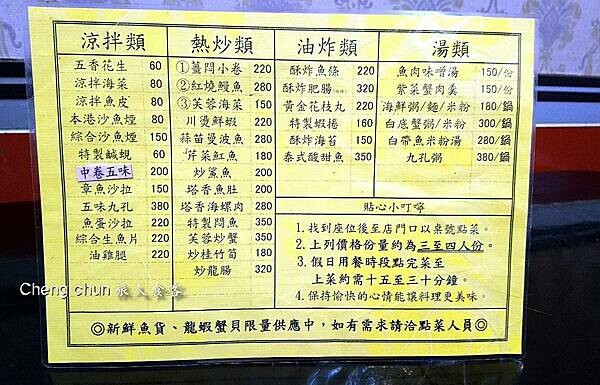 涼拌類
五香花生 60
涼拌海菜 80
涼拌魚皮 80
本港沙魚煙 80
綜合沙魚煙 150
特製鹹蜆 60
中卷五味 200
章魚沙拉 150
五味九孔 380
魚蛋沙拉 220
綜合生魚片 220
油雞腿 220
熱炒類
①薑悶小卷 220
②紅燒鰻魚 280
③芙蓉海菜 150
川燙鮮蝦 220
蒜苗曼波魚 280
芹菜魟魚 180
炒鯊魚 200
塔香魚肚 200
塔香海螺肉 280
特製悶魚 350
芙蓉炒蟹 350
炒桂竹筍 180
炒龍腸 320
油炸類
酥炸魚條 220
酥炸肥腸 320
黃金花枝丸 220
特製蝦捲 160
酥炸海苔 150
泰式酸甜魚 350
湯類
魚肉味噌湯 150/份
紫菜蟹肉羹 150/份
海鮮粥/麵/米粉 180/鍋
白底蟹粥/米粉 300/鍋
白帶魚米粉湯 280/鍋
九孔粥 380/鍋
貼心小叮嚀
1. 找到座位後至店門口以桌號點菜。
2. 上列價格份量約為三至四人份。
3. 假日用餐時段點完菜至
上菜約需十五至三十分鐘。
4. 保持愉快的心情能讓料理更美味。
◎新鮮魚貨、龍蝦蟹貝限量供應中，如有需求請洽點菜人員◎
Cheng chun 旅人食客